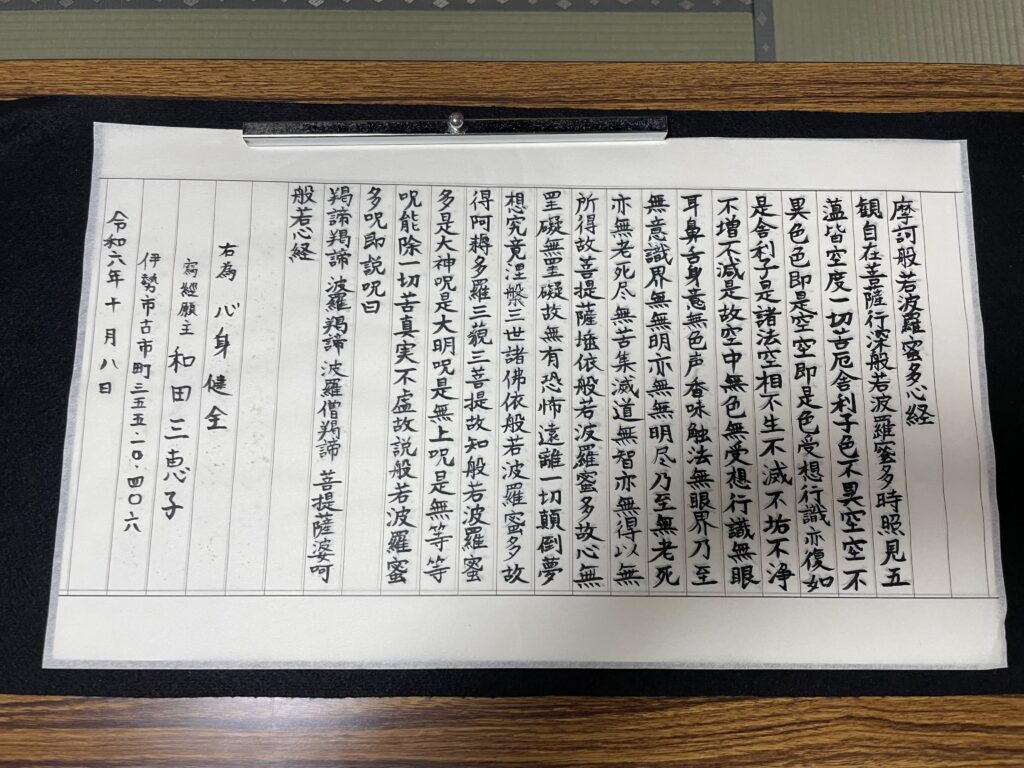 摩訶般若波羅蜜多心経
観自在菩薩行深般若波羅蜜多時照見五
薀皆空度一切苦厄舎利子色不異空空不
異色色即是空空即是色受想行識亦復如
是舎利子是諸法空相不生不滅不垢不浄
不増不減是故空中無色無受想行識無眼
耳鼻舌身意無色声香味触法無眼界乃至
無意識界無無明亦無無明尽乃至無老死
亦無老死尽無苦集滅道無智亦無得以無
所得故菩提薩埵依般若波羅蜜多故心無
罣礙無罣礙故無有恐怖遠離一切顛倒夢
想究竟涅槃三世諸佛依般若波羅蜜多故
得阿耨多羅三藐三菩提故知般若波羅蜜
多是大神呪是大明呪是無上呪是無等等
呪能除一切苦真実不虚故説般若波羅蜜
多呪即説呪曰
羯諦羯諦 波羅羯諦 波羅僧羯諦 菩提薩婆呵
般若心経
右為 心身健全
写経願主 和田三恵子
伊勢市古市町二五五・〇・四〇〇六
令和六年十月八日